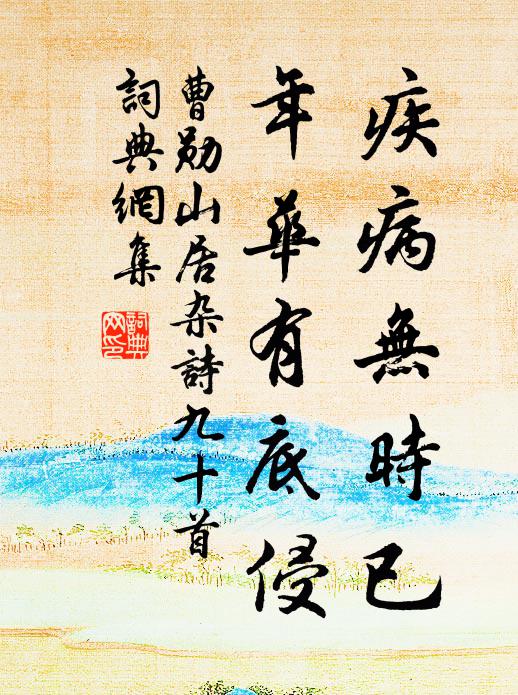 疾病無時已
年華有底侵
曹勛山居杂詩九十首
詞典網集
詞典
网印